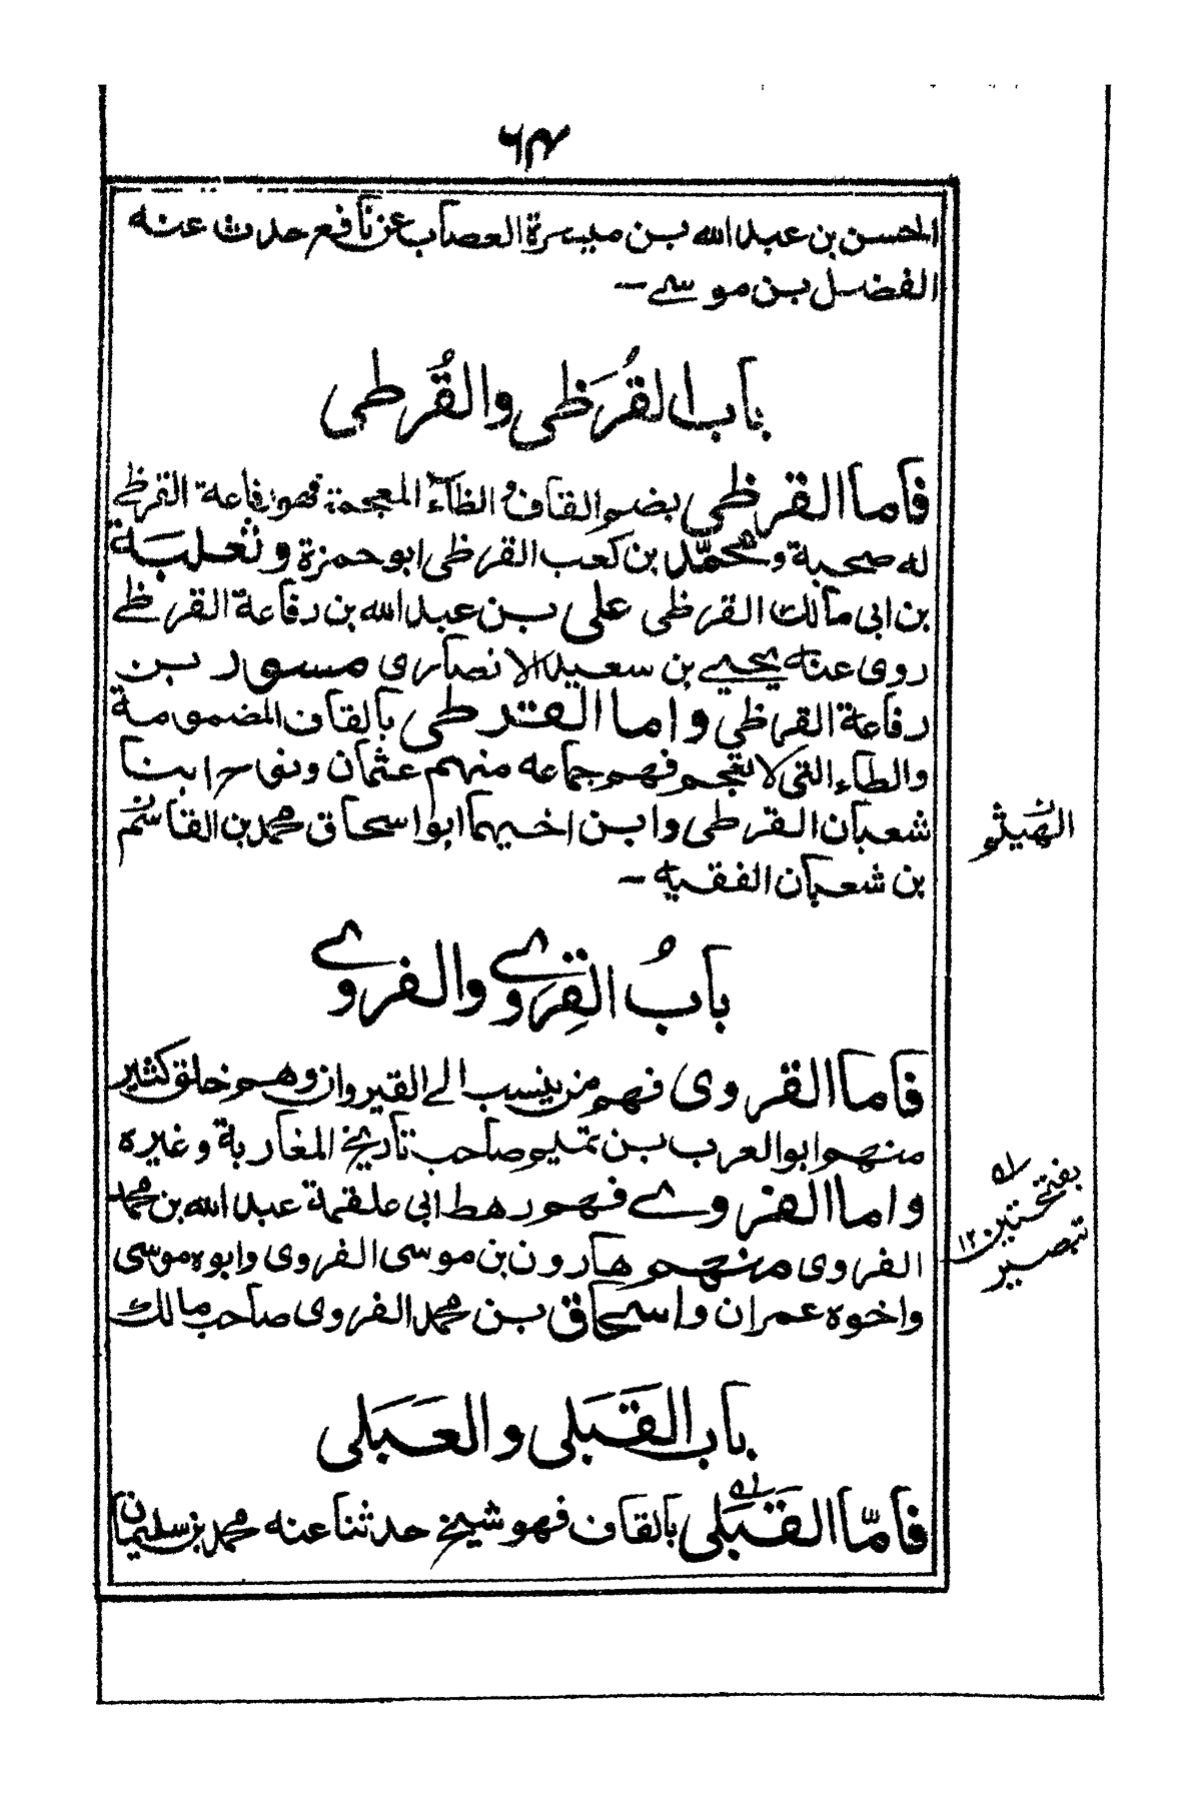 ۶۴
الحسن بن عبد الله بن ميسرة العصاب عن نافع حدث عنه
الفضل بن موسے ـ
باب القُرَظى والقُرطى
فاما القرظى بضم القاف و الظاء المعجمة فهو رفاعة القرظے
له صحبة و محمّد بن كعب القرظى ابو حمزة و ثعلبة
بن ابى مالك القرظى على بن عبد الله بن رفاعة القرظے
روى عنه يحيے بن سعيد الانصارى مسور بن
رفاعة القرظى واما القرطى بالقاف المضمومة
والطاء التى لا تعجم فهم جماعه منهم عثمان و ابنا
شعبان القرطى وابن اخيهما ابو اسحاق محمد بن القاسم
بن شعبان الفقيه ـ
الهيثم
بابُ القِرَوے والفروے
فاما القروى فهم من ينسب الے القيروان وهم خلق كثير
منهم ابو العرب بن تميم صاحب تاريخ المغاربة وغيره
واما الفروے فهو رهط ابى علقمة عبد الله بن محمد
الفروى منهم هارون بن موسى الفروى وابوه موسى
واخوه عمران واسحاق بن محمد الفروى صاحب مالك
باب القَبَلى والعَبَلى
فامّا القَبَلى بالقاف فهو شيخ حدثنا عنه محمد بن سليمان
بفتحتين ١٢
تبصير